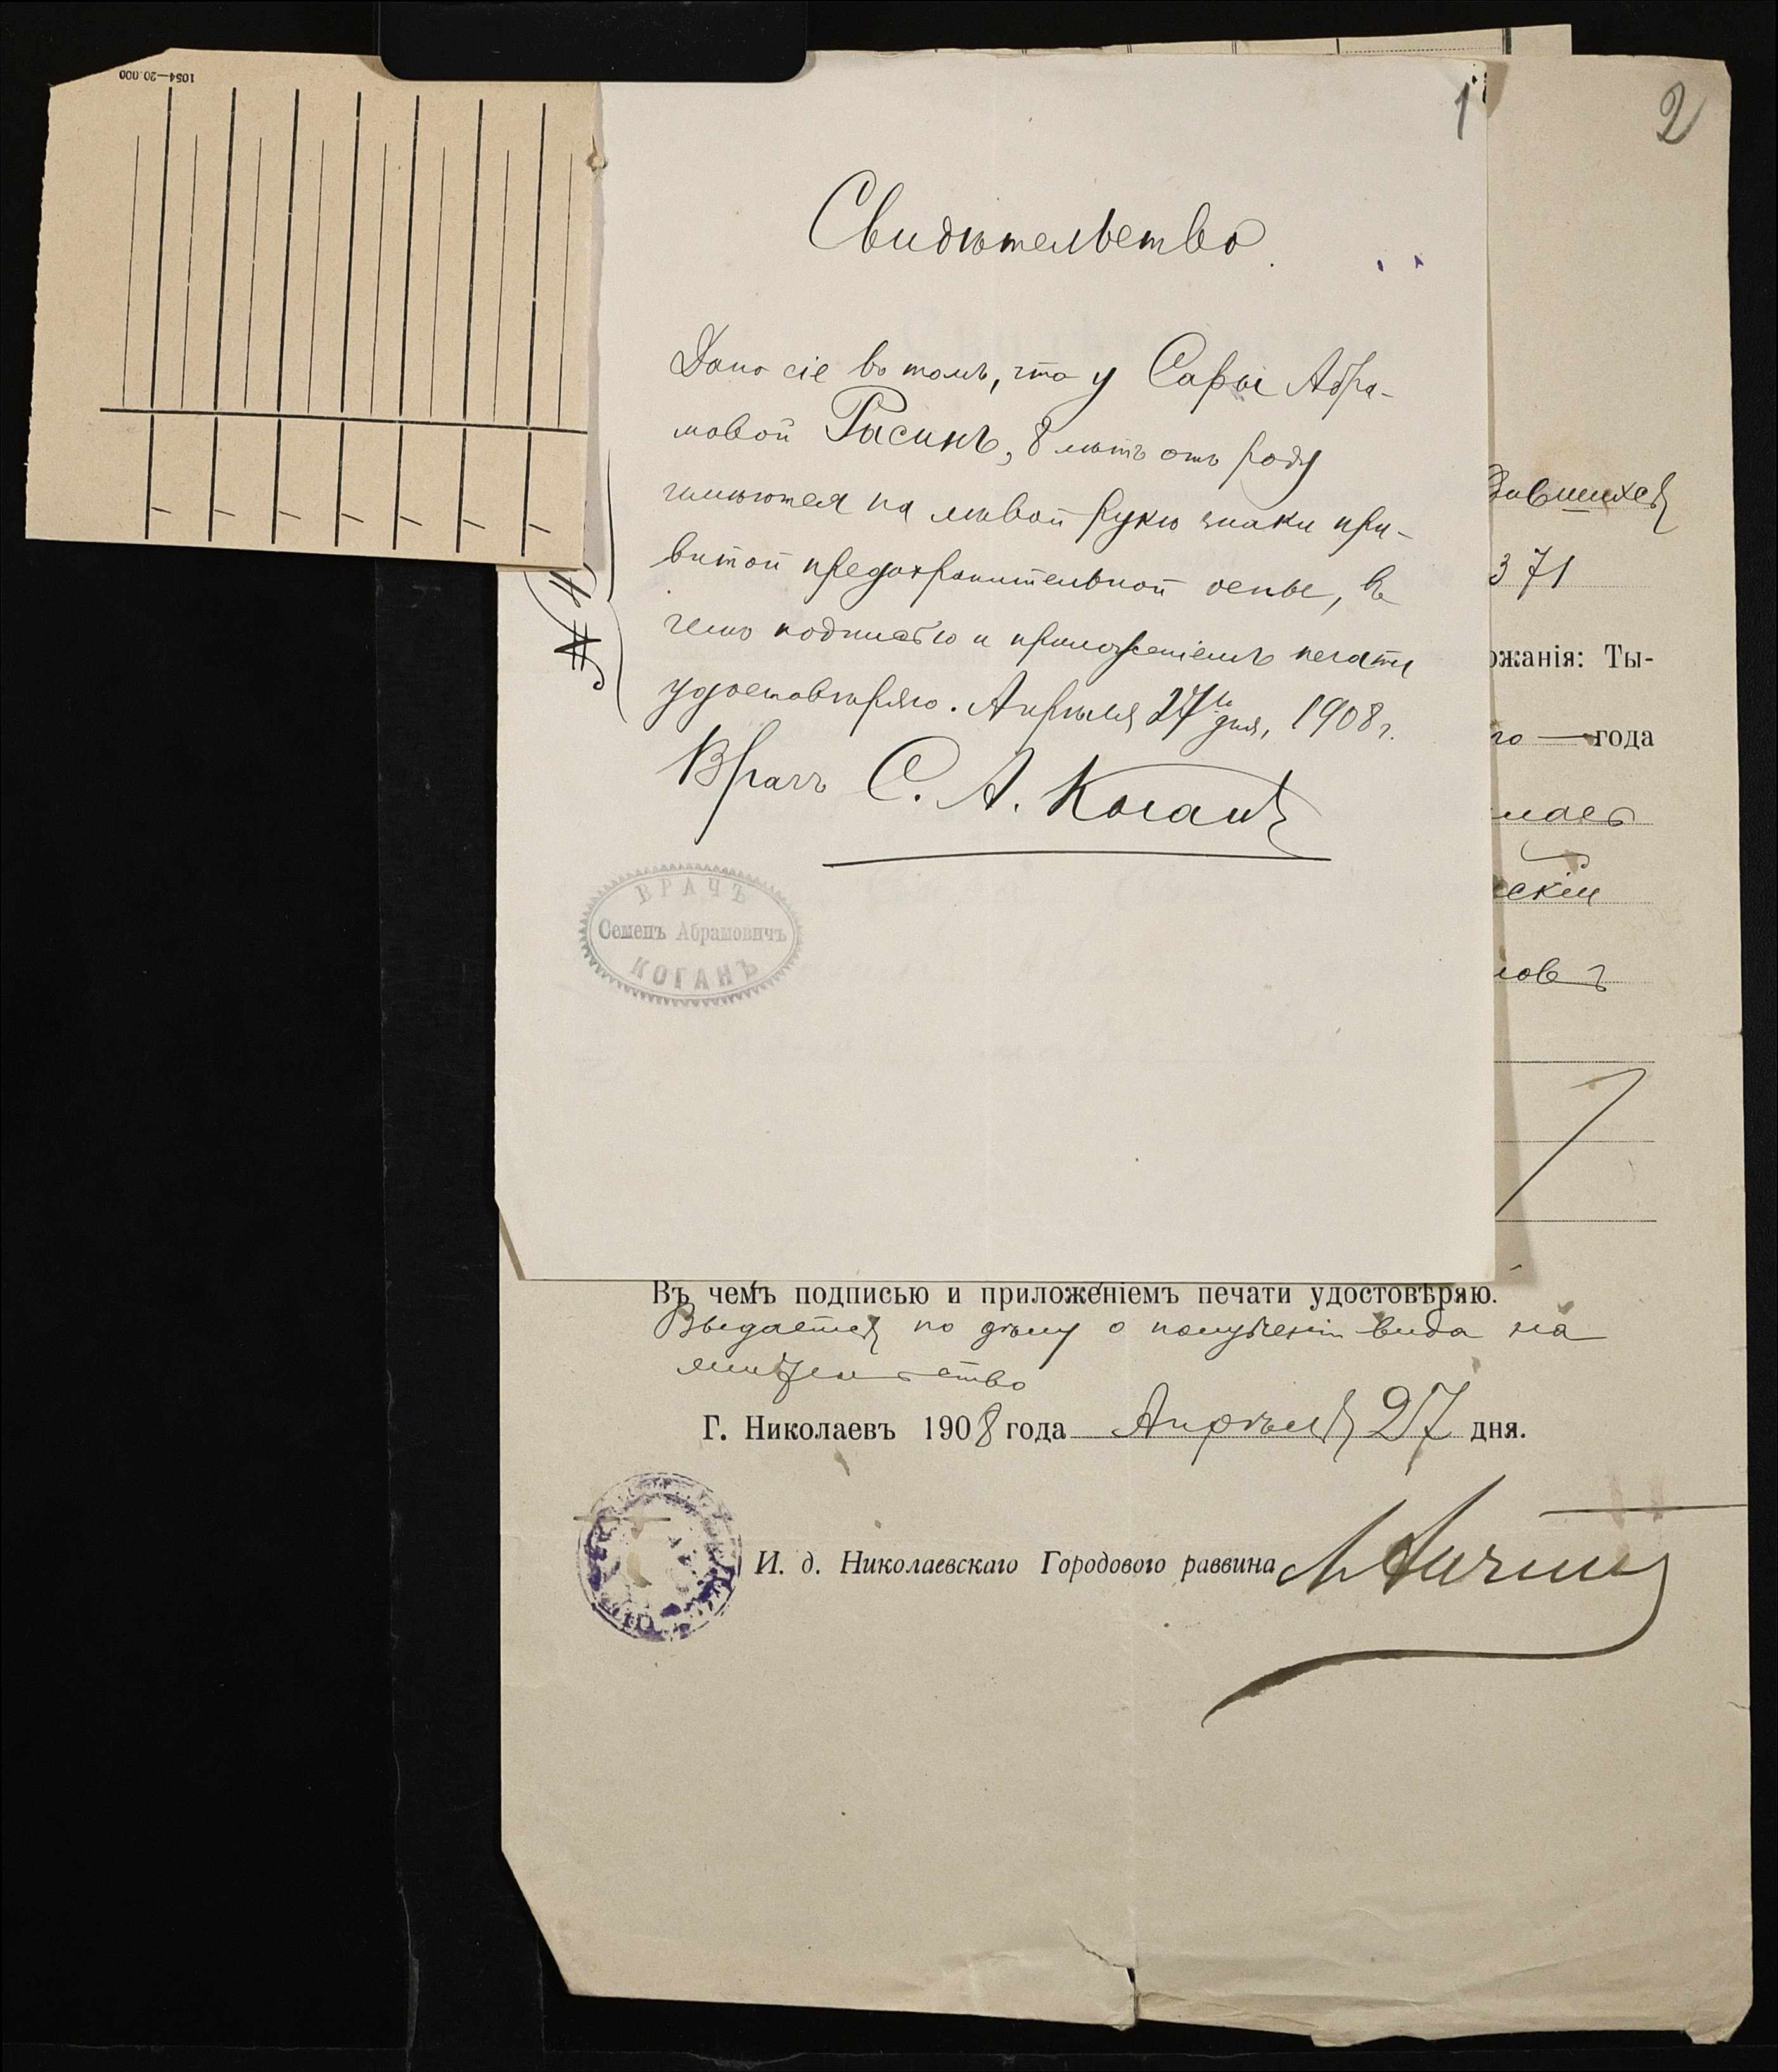 1054—20.000
1
2
Свидѣтельство.
Дано сіе въ томъ, что у Сары Абра-
мовой Расинъ, 8 лѣтъ отъ роду
имѣются на лѣвой рукѣ знаки при-
витой предохранительной оспы, въ
чемъ подписью и приложеніемъ печати
удостовѣряю. Апрѣля 27го дня, 1908 г.
Врачъ С. А. Коганъ
ВРАЧЪ
Семенъ Абрамовичъ
КОГАНЪ
371
ржанія: Ты-
го — года
лаев
скій
новъ
Въ чемъ подписью и приложеніемъ печати удостовѣряю.
Выдается по дѣлу о полученіи вида на
жительство
Г. Николаевъ 1908 года Апрѣля 27 дня.
И. д. Николаевскаго Городового раввина